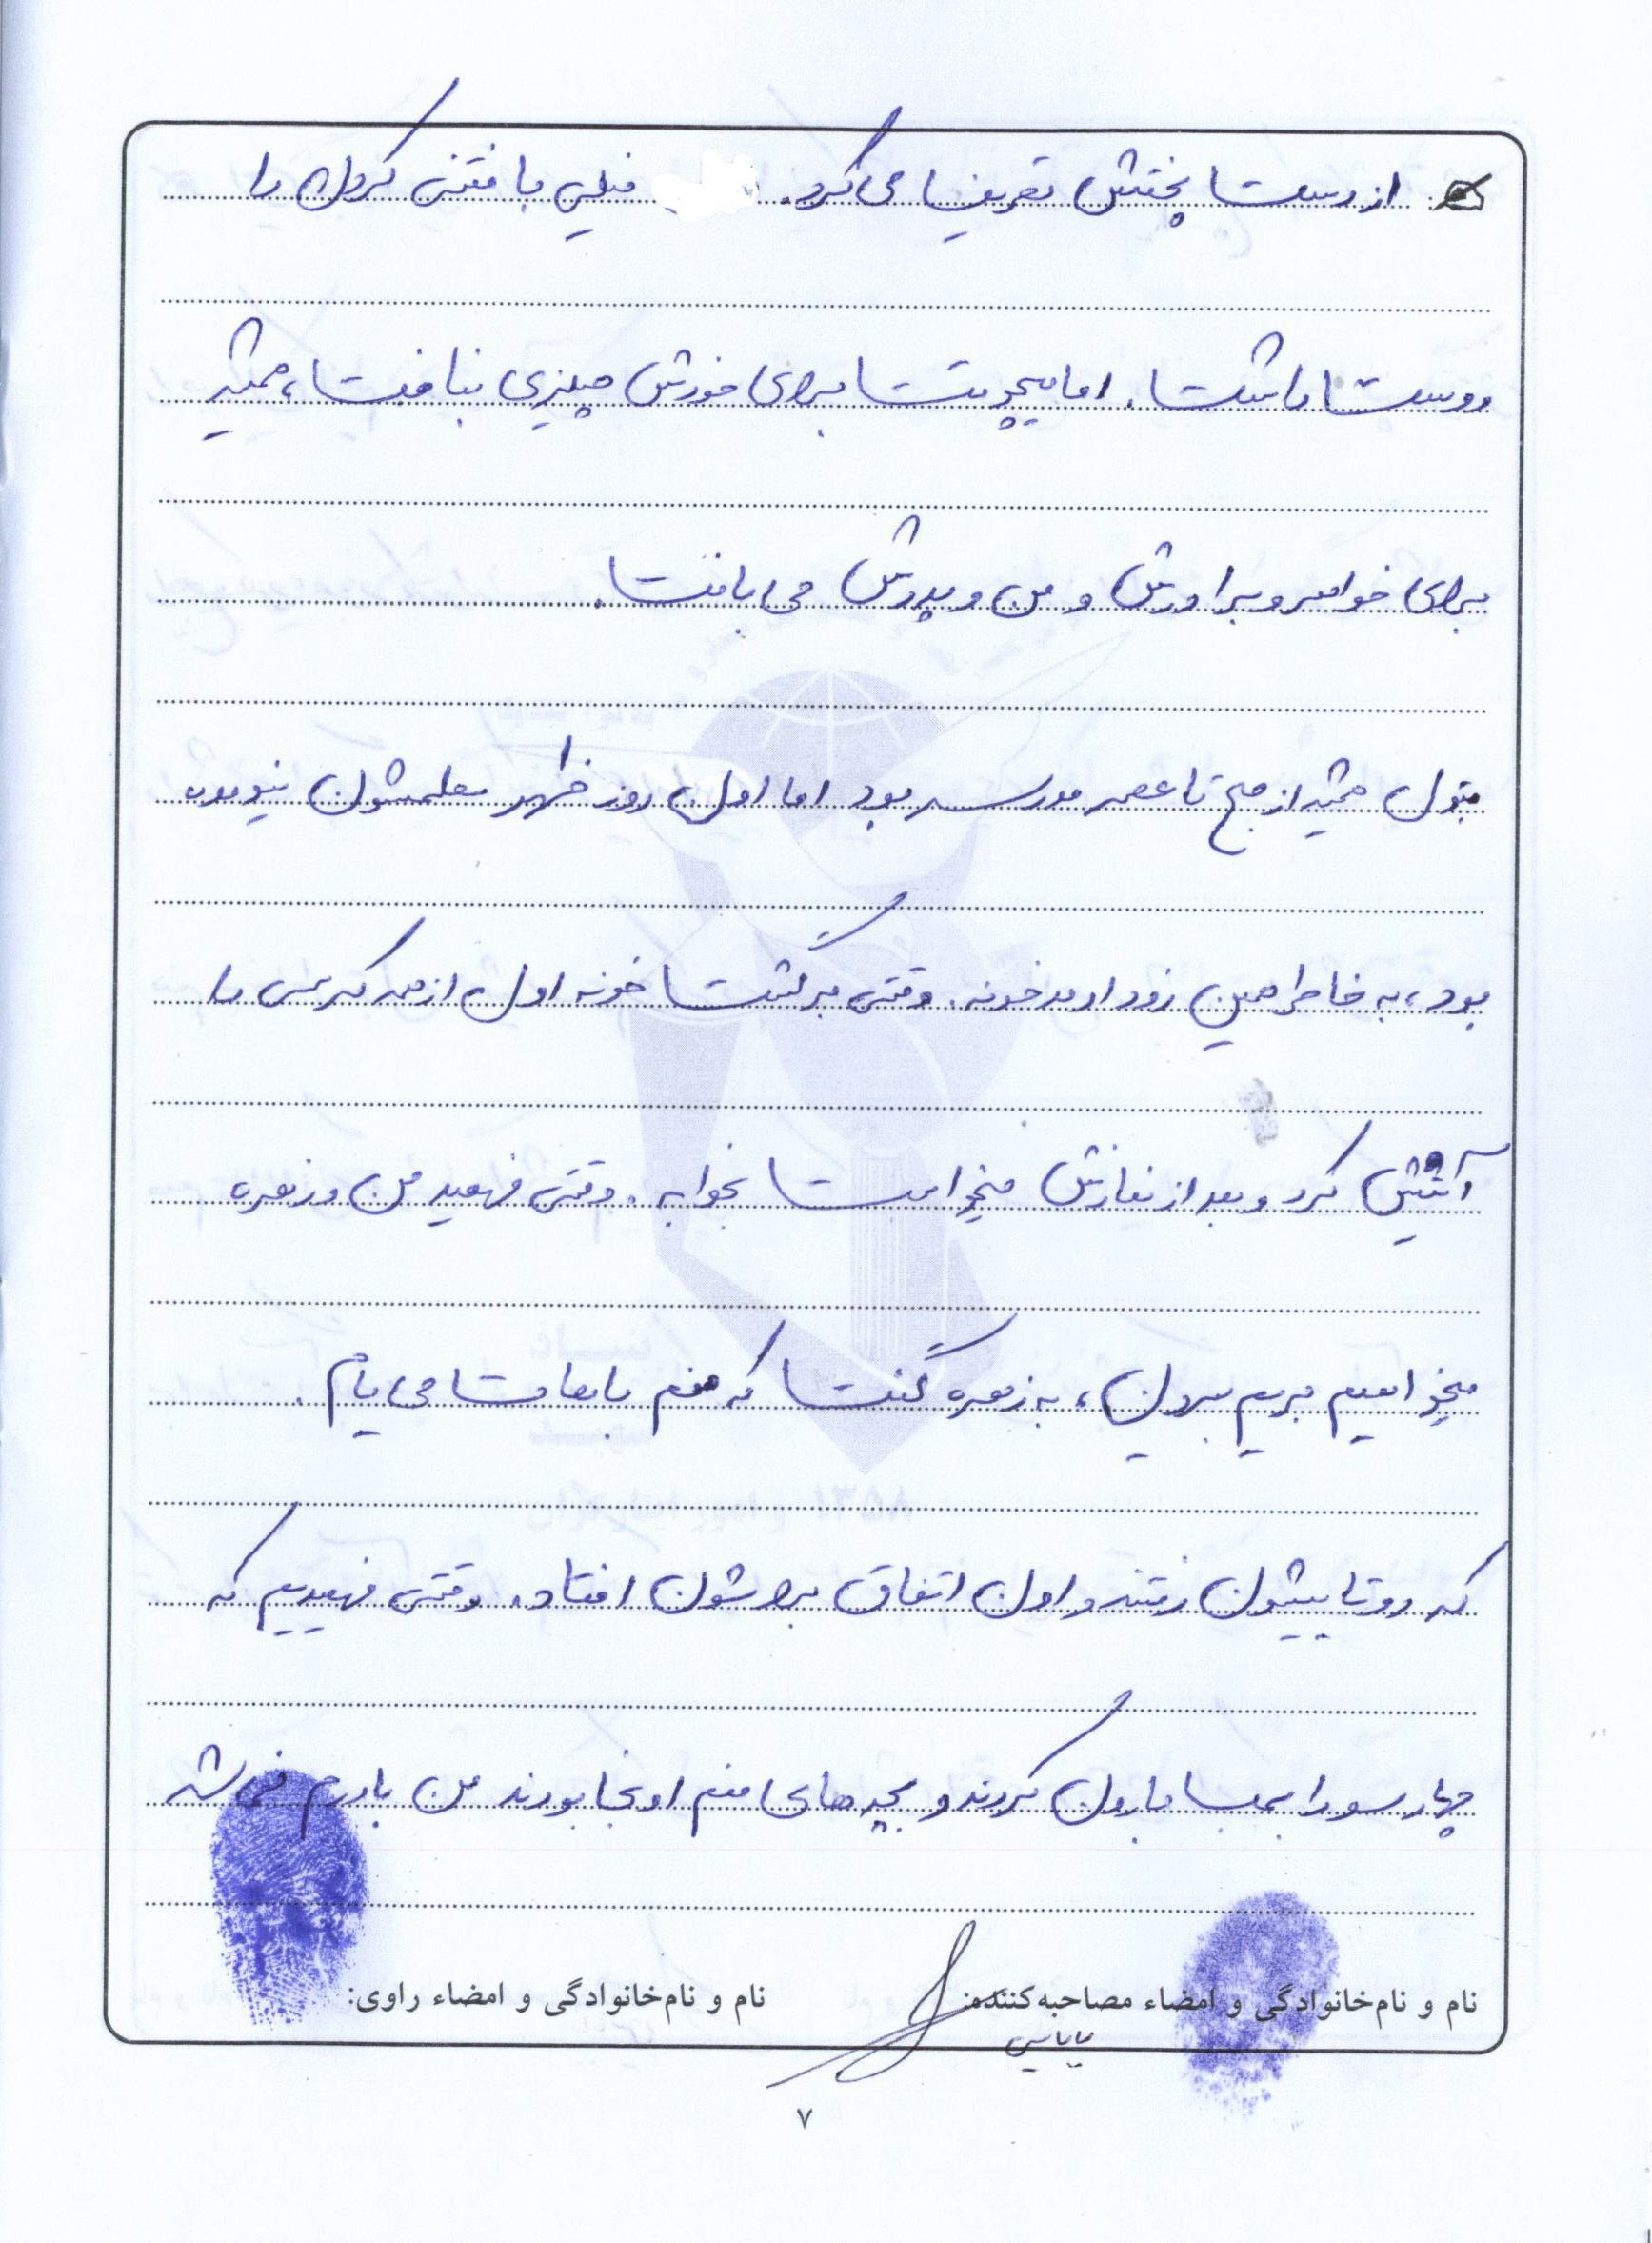 از دست پختش تعریف می کرد. خیلی بافتنی کردن را
دوست داشت. اما هیچوقت برای خودش چیزی نبافت، همیشه
برای خواهر و برادرش و من و پدرش می بافت.
بتول همیشه از صبح تا عصر مدرسه بود اما اون روز ظهر معلمشون نیومده
بود، به خاطر همین زود اومد خونه. وقتی برگشت خونه اول از همه کرسی را
آتش کرد و بعد از نمازش میخواست بخوابه. وقتی فهمید من و زهره
میخواهیم بریم بیرون، به زهره گفت که منم باهات می یام.
که دوتاییشون رفتند و اون اتفاق براشون افتاد. وقتی فهمیدیم که
چهارسو را بمب باران کردند و بچه های منم اونجا بودند من باورم نمی شد
نام و نام‌خانوادگی و امضاء مصاحبه‌کننده:
نام و نام‌خانوادگی و امضاء راوی:
بابایی
۷